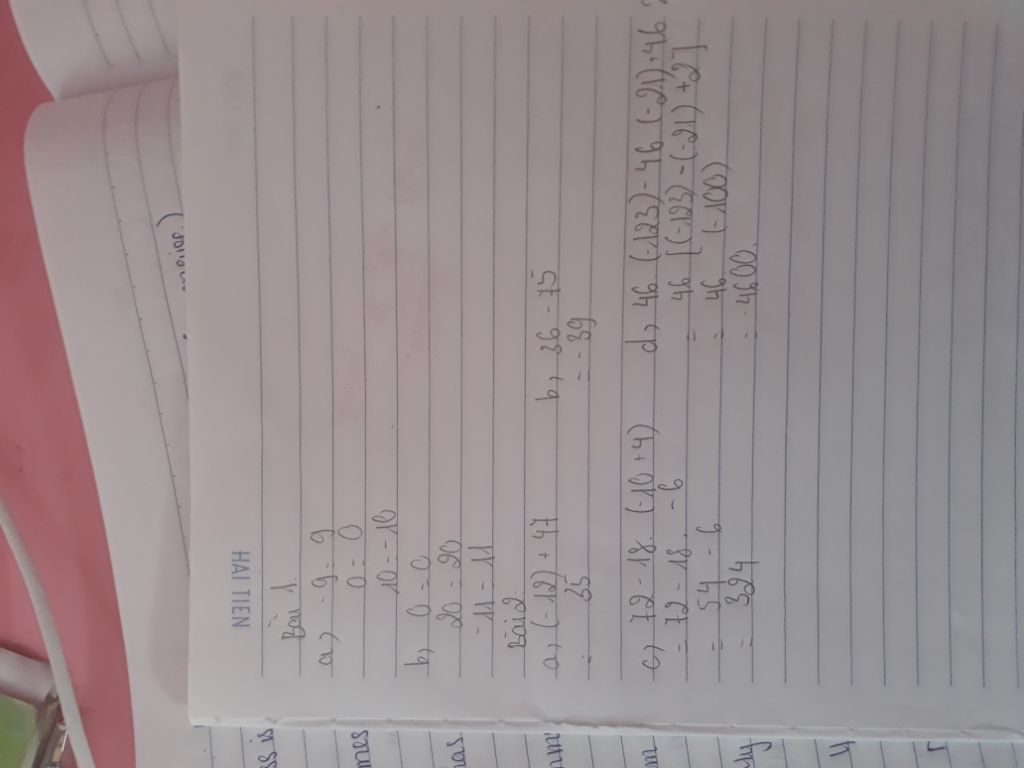 HẢI TIẾN
Bài 1.
a, -9 = 9
0 = 0
10 = -10
b, 0 = 0
20 = 20
-11 = 11
Bài 2
a, (-12) + 47
= 35
b, 36 - 75
= -39
c, 72 - 18. (-10 + 4)
= 72 - 18. -6
= 54 - 6
= 324
d, 46. (-123) - 46. (-21) + 46.
= 46 [(-123) - (-21) + 2]
= 46 (-100)
= -4600.